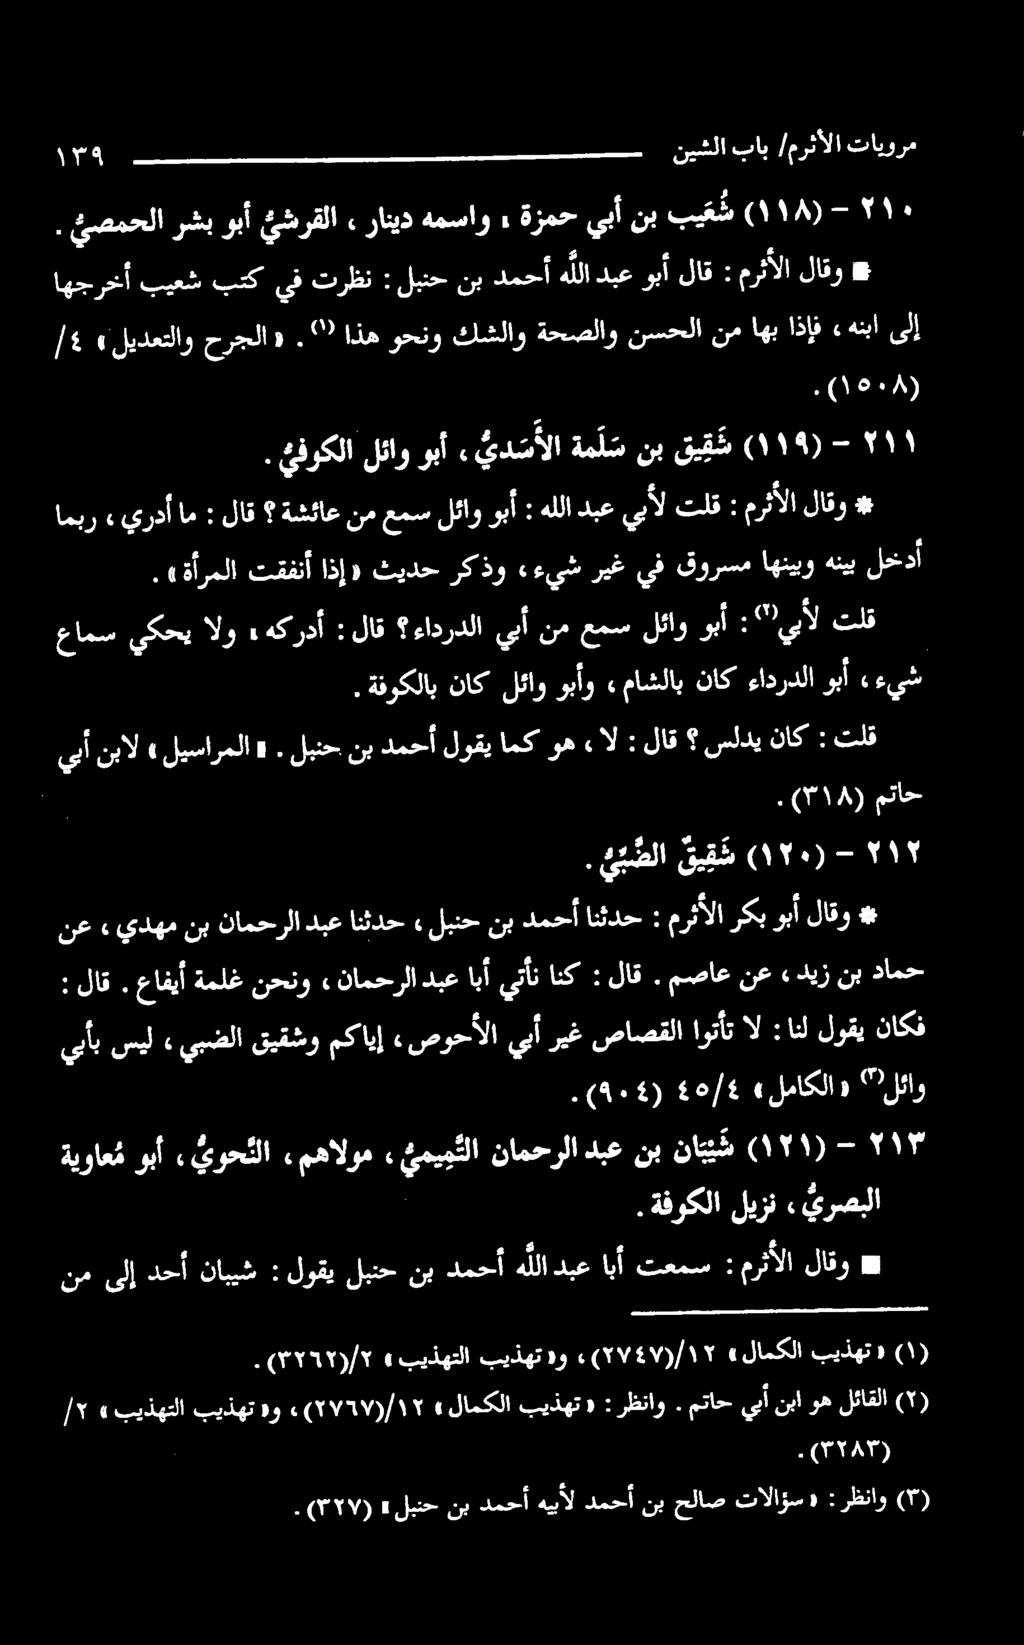 مرويات الأثرم/ باب الشين ١٣٩
٢١٠ - (١١٨) شُعَيب بن أبي حمزة، واسمه دينار، القرشيُّ أبو بشر الحمصيُّ.
■ وقال الأثرم: قال أبو عبد الله أحمد بن حنبل: نظرت في كتب شعيب أخرجها
إلى ابنه، فإذا بها من الحسن والصحة والشك ونحو هذا (١). «الجرح والتعديل» ٤/
(١٥٠٨).
٢١١ - (١١٩) شَقِيق بن سَلَمة الأَسَديُّ، أبو وائل الكوفيُّ.
* وقال الأثرم: قلت لأبي عبد الله: أبو وائل سمع من عائشة؟ قال: ما أدري، ربما
أدخل بينه وبينها مسروق في غير شيء، وذكر حديث «إذا أنفقت المرأة».
قلت لأبي(٢): أبو وائل سمع من أبي الدرداء؟ قال: أدركه، ولا يحكي سماع
شيء، أبو الدرداء كان بالشام، وأبو وائل كان بالكوفة.
قلت: كان يدلس؟ قال: لا، هو كما يقول أحمد بن حنبل. «المراسيل» لابن أبي
حاتم (٣١٨).
٢١٢ - (١٢٠) شَقِيقٌ الضَّبِّيُّ.
* وقال أبو بكر الأثرم: حدثنا أحمد بن حنبل، حدثنا عبد الرحمان بن مهدي، عن
حماد بن زيد، عن عاصم. قال: كنا نأتي أبا عبد الرحمان، ونحن غلمة أيفاع. قال:
فكان يقول لنا: لا تأتوا القصاص غير أبي الأحوص، إياكم وشقيق الضبي، ليس بأبي
وائل(٣) «الكامل» ٤/٤٥ (٩٠٤).
٢١٣ - (١٢١) شَيْبَان بن عبد الرحمان التَّمِيميُّ، مولاهم، النَّحويُّ، أبو مُعاوية
البصريُّ، نزيل الكوفة.
■ وقال الأثرم: سمعت أبا عبد الله أحمد بن حنبل يقول: شيبان أحد إلى من
(١) «تهذيب الكمال» ١٢/(٢٧٤٧)، و«تهذيب التهذيب» ٢/(٣٢٦٢).
(٢) القائل هو ابن أبي حاتم. وانظر: «تهذيب الكمال» ١٢/(٢٧٦٧)، و«تهذيب التهذيب» ٢/
(٣٢٨٣).
(٣) وانظر: «سؤالات صالح بن أحمد لأبيه أحمد بن حنبل» (٣٢٧).